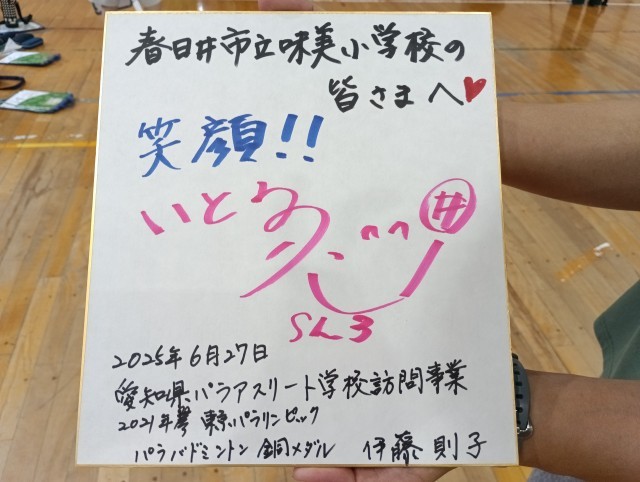 春日井市立味美小学校の
皆さまへ
笑顔!!
いとう
SL3
2025年6月27日
愛知県パラアスリート学校訪問事業
2021年 東京パラリンピック
パラバドミントン 銅メダル 伊藤 則子